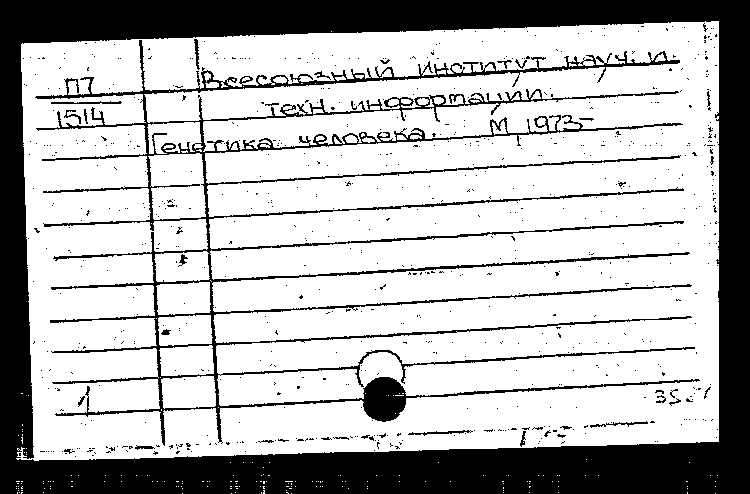 П7
1514
Всесоюзный институт науч. и.
техн. информации.
Генетика человека. М, 1973-
1